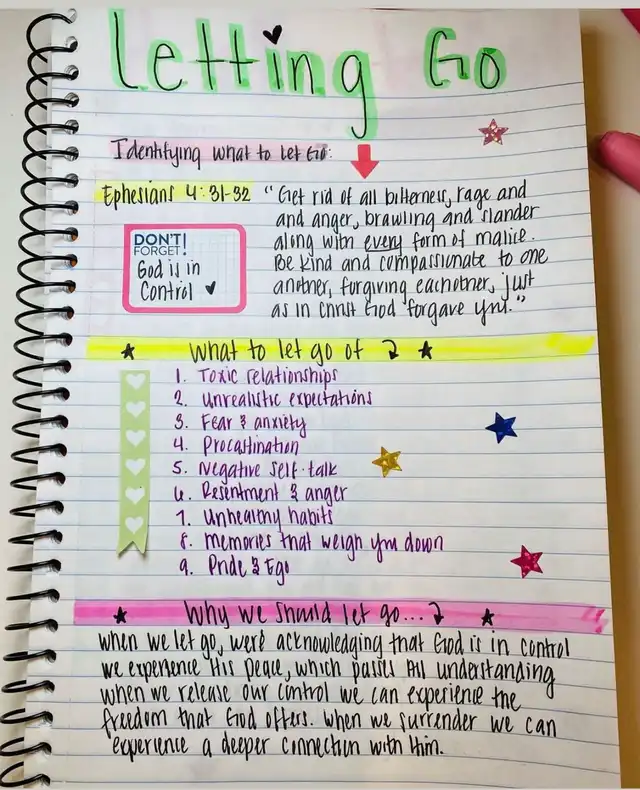 Letting Go
Identifying what to let Go:
Ephesians 4:31-32
"Get rid of all bitterness, rage and
and anger, brawling and slander
along with every form of malice.
Be kind and compassionate to one
another, forgiving eachother, just
as in christ God forgave you."
DON'T!
FORGET!
God is in
Control
What to let go of
1. Toxic relationships
2. Unrealistic expectations
3. Fear & anxiety
4. Procastination
5. Negative self-talk
6. Resentment & anger
7. Unhealthy habits
8. Memories that weigh you down
9. Pride & Ego
Why we should let go...
When we let go, were acknowledging that God is in control
we experience His peace, which passes All understanding
when we release our control we can experience the
freedom that God offers. When we surrender we can
experience a deeper connection with Him.